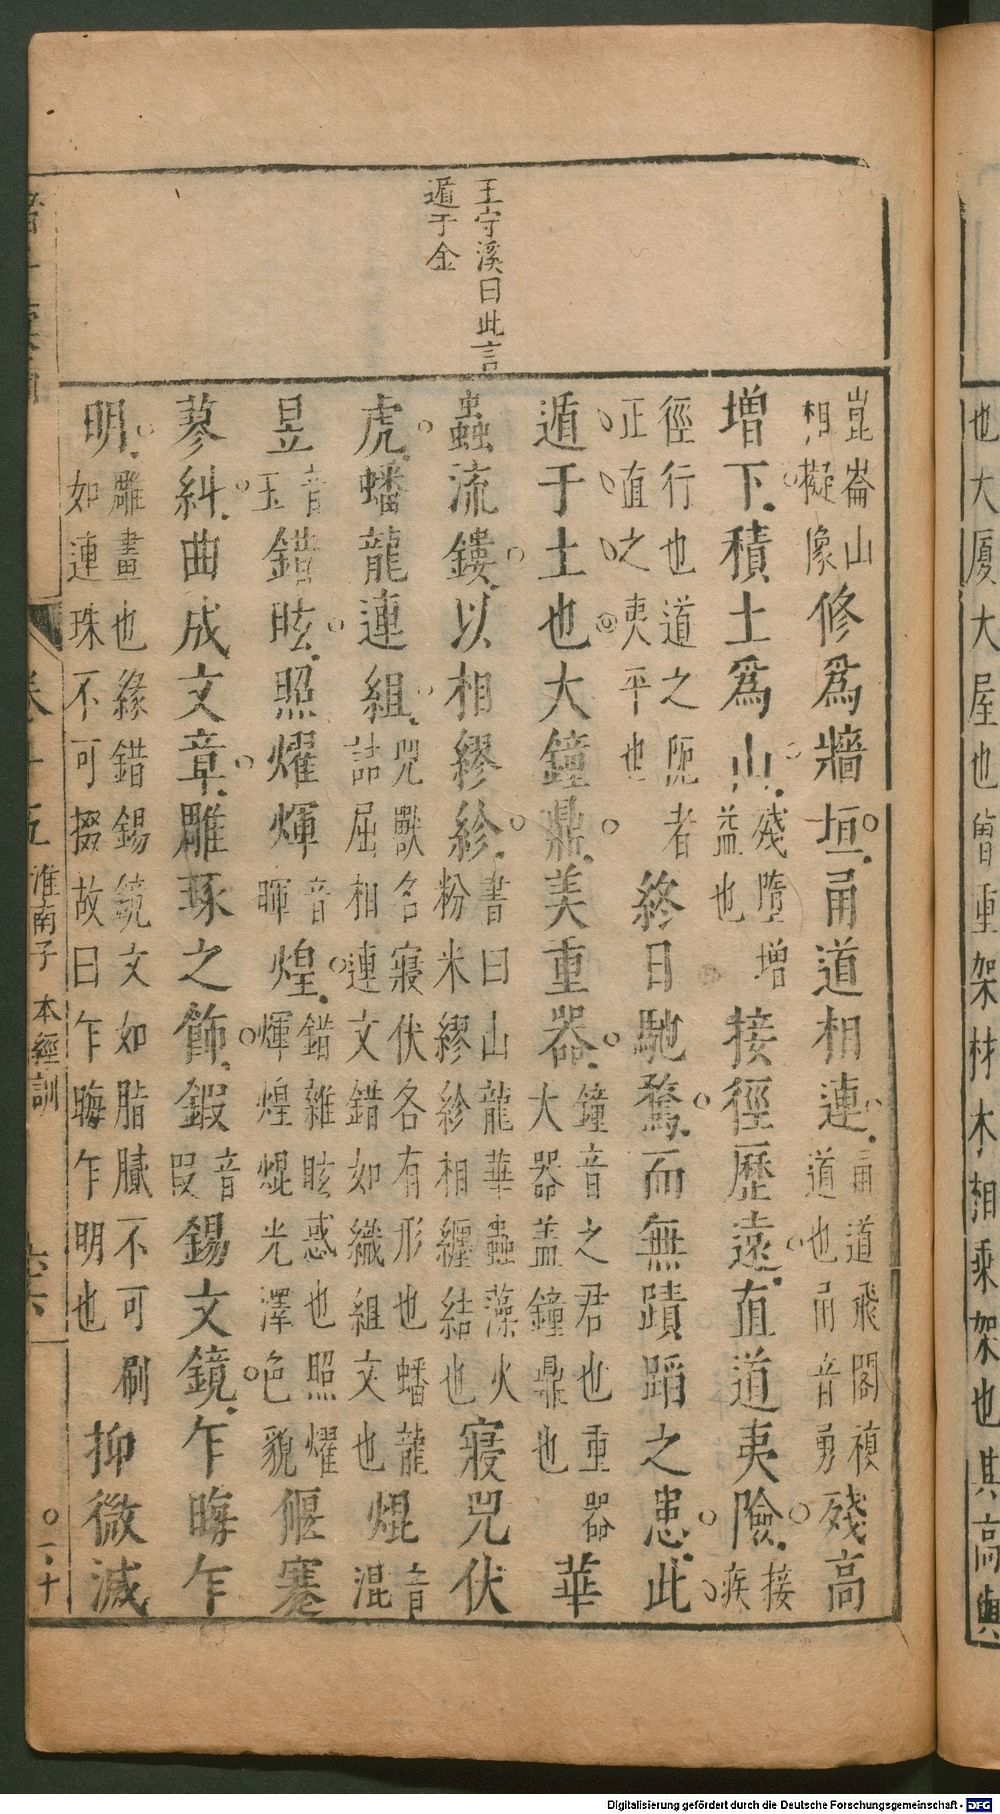 王守溪曰此言
遁于金
崑崙山
相擬像
修爲牆垣甬道相連
甬道飛閣複
道也甬音勇
殘高
增下積土爲山
殘墮增
益也
接徑歷遠直道夷險
接
疾
徑行也道之阨者
正直之夷平也
終日馳騖而無蹟蹈之患此
遁于土也大鐘鼎美重器
鐘音之君也重器
大器蓋鐘鼎也
華
蟲流鏤以相繆紾
書曰山龍華蟲藻火
粉米繆紾相纏結也
寢兕伏
虎蟠龍連組
兕獸名寢伏各有形也蟠龍
詰屈相連文錯如織組文也
焜
音
混
昱
音
玉
錯眩照燿煇
音
暉
煌
錯雜眩惑也照燿
煇煌焜光澤色貌
偃蹇
蓼糾曲成文章雕琢之飾鍛
音
叚
錫文鏡乍晦乍
明
雕畫也緣錯錫鏡文如脂膩不可刷
如連珠不可掇故曰乍晦乍明也
抑微滅
卷十五 淮南子 本經訓
六六
二十
也大厦大屋也曾重架材木相乘架也其高與
Digitalisierung gefördert durch die Deutsche Forschungsgemeinschaft - DFG